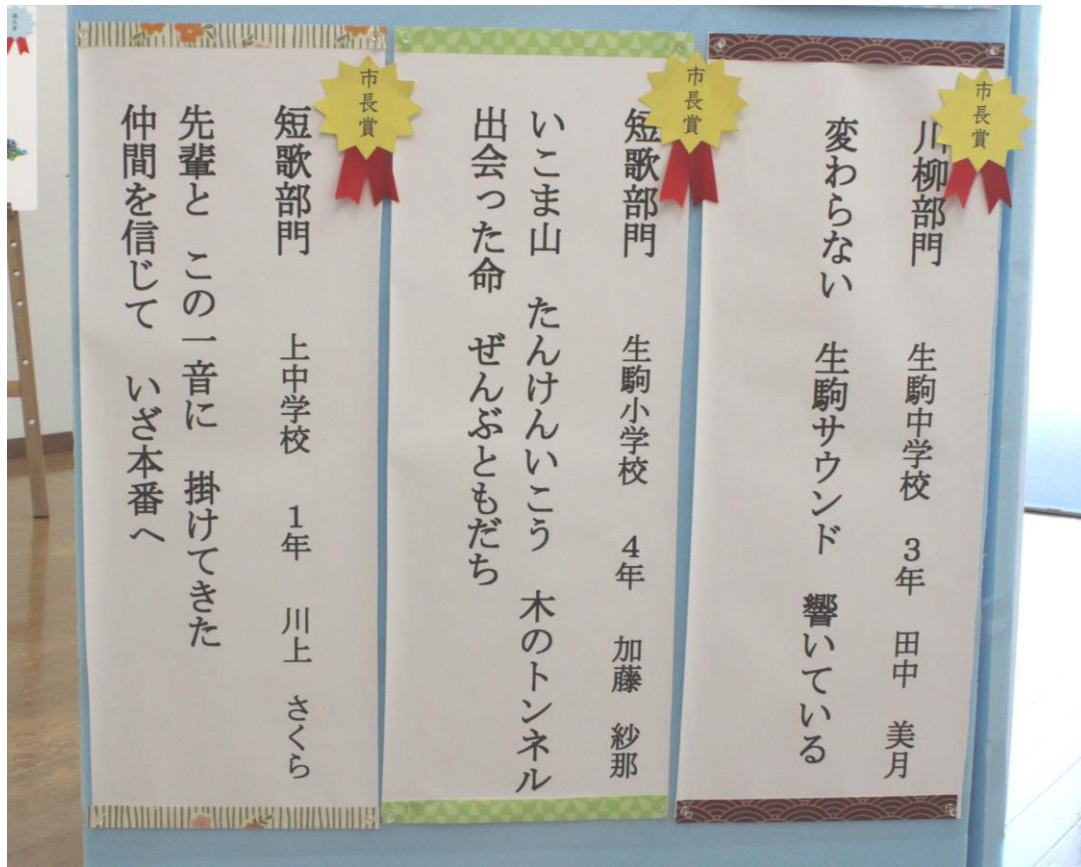 市長賞
川柳部門 生駒中学校 3年 田中 美月
変わらない 生駒サウンド 響いている
市長賞
短歌部門 生駒小学校 4年 加藤 紗那
いこま山 たんけんいこう 木のトンネル
出会った命 ぜんぶともだち
市長賞
短歌部門 上中学校 1年 川上 さくら
先輩と この一音に 掛けてきた
仲間を信じて いざ本番へ